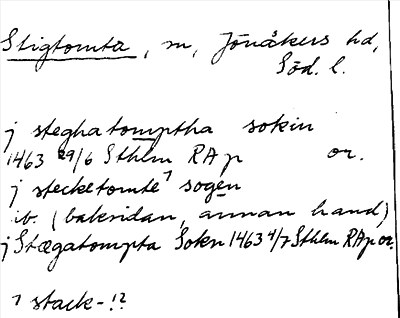 Stigtomta, sn, Jönåkers hd,
Söd. l.
j steghatomptha sokin
1463 29/6 Sthlm RAp or.
j stecketomte¹ sogen
ib. (baksidan, annan hand)
j Stægatompta Sokn 1463 4/7 Sthlm RAp or.
1 stack-!?